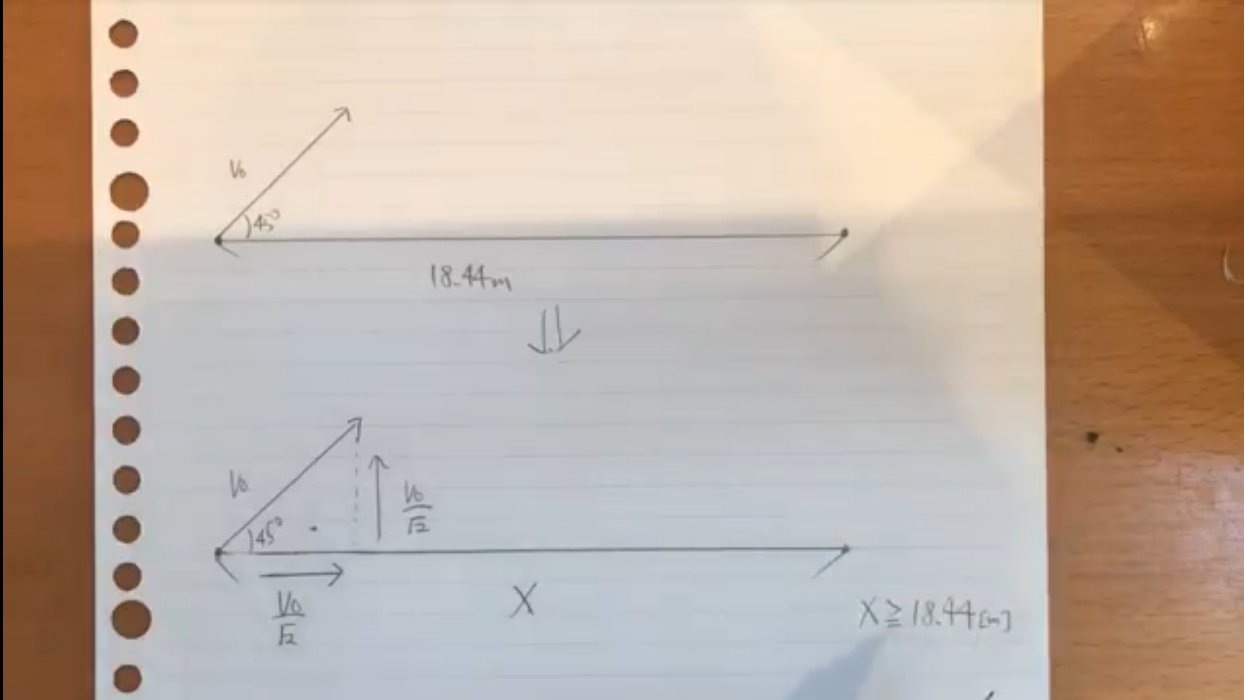 V₀
45°
18.44m
V₀
45°
V₀/√2
V₀/√2
X
X≧18.44[m]